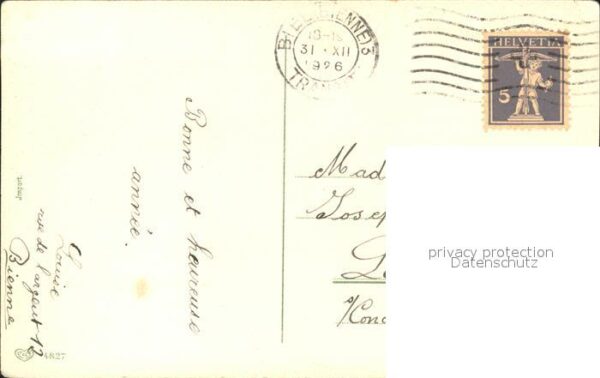 BIEL (BIENNE) 3
31. XII
1926
TRANS
HELVETIA
5
Bonne et heureuse
année.
Louise
rue de l'argent 12
Bienne
4827
Mad
Josep
privacy protection
Datenschutz